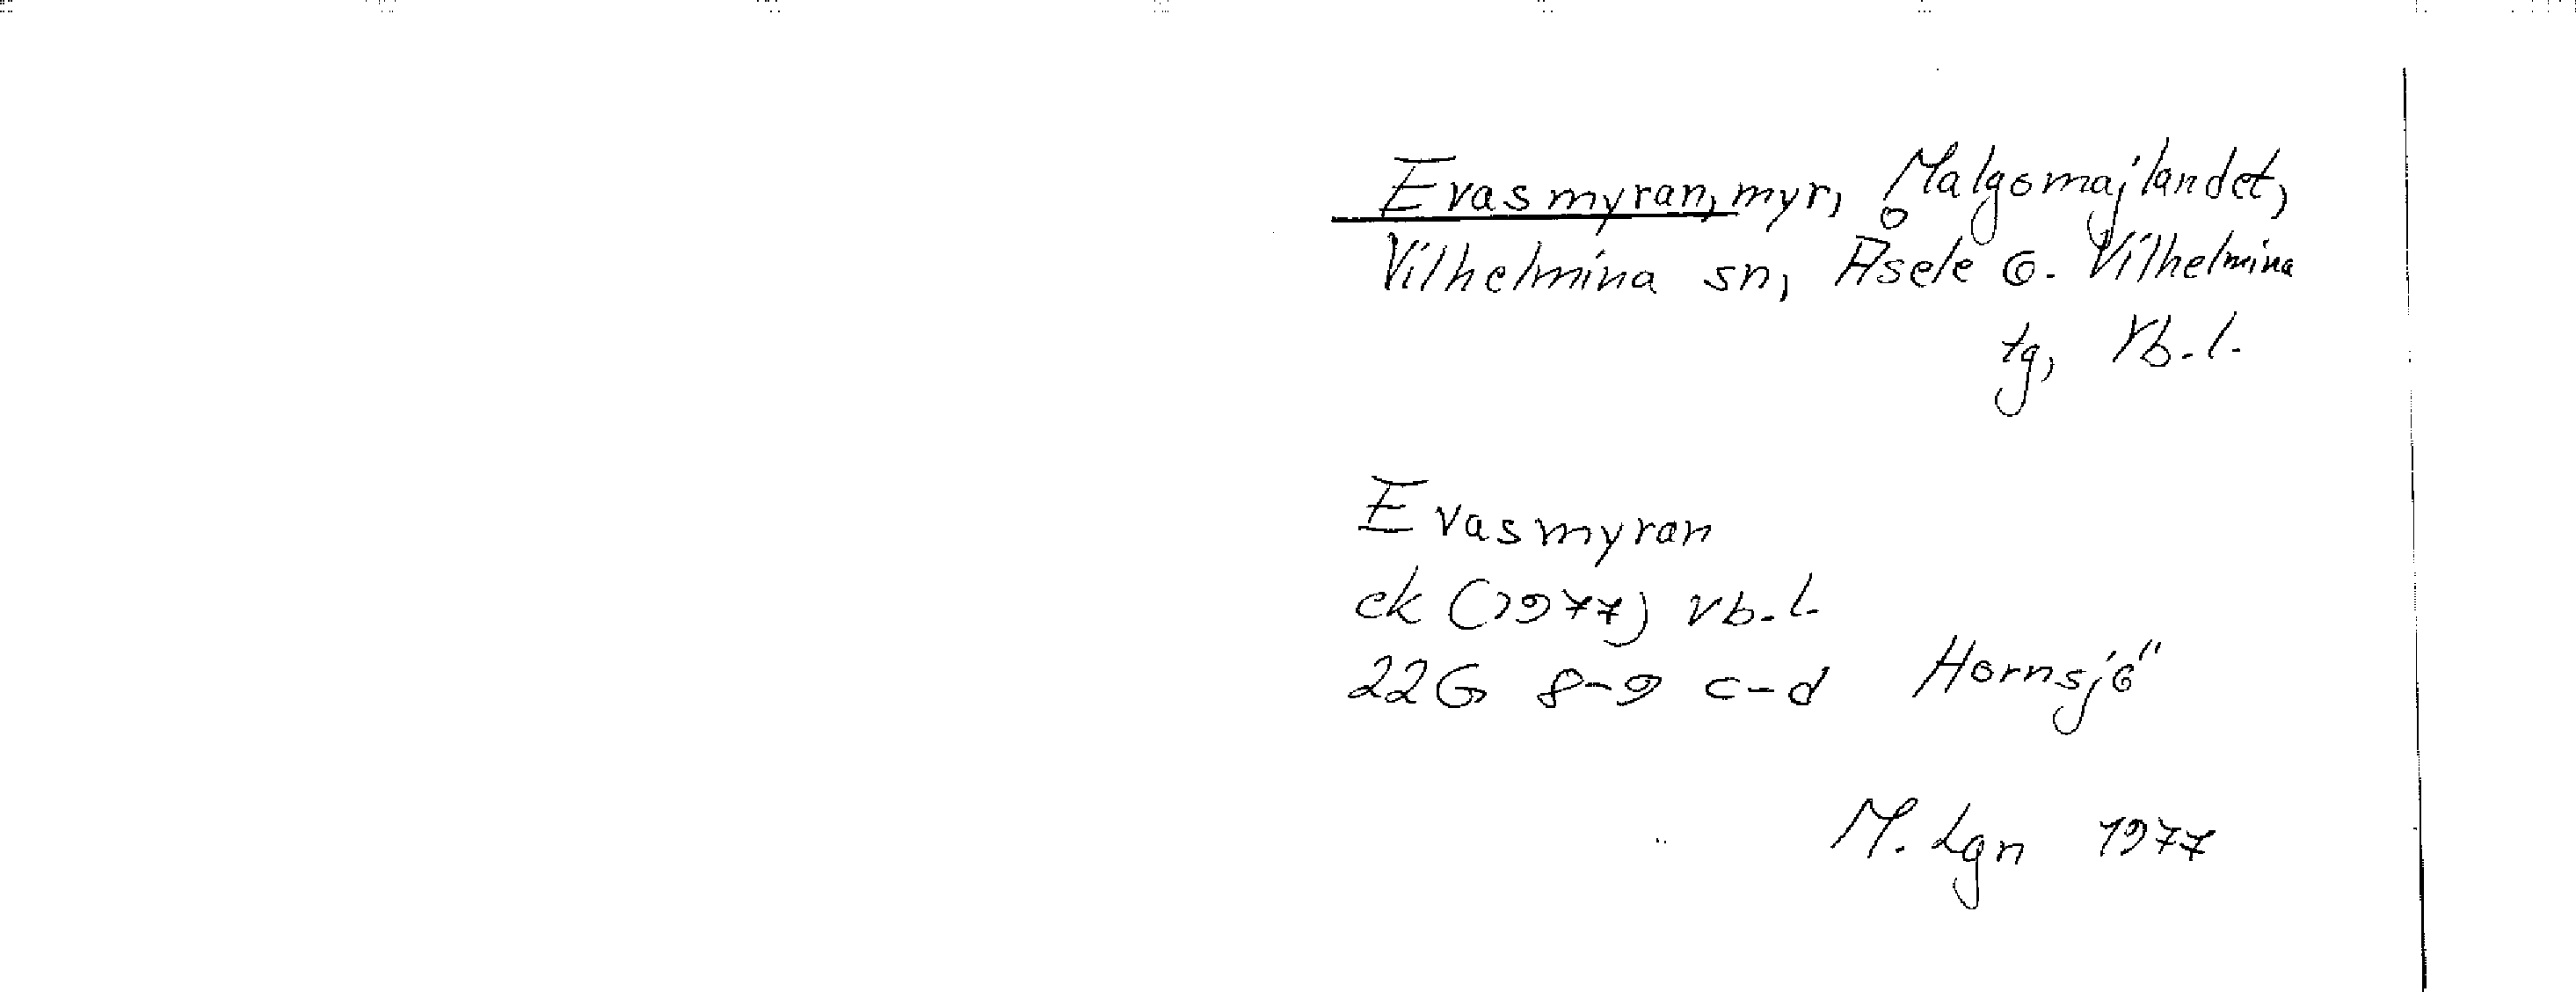 Evasmyran, myr, Malgomajlandet,
Vilhelmina sn, Åsele o. Vilhelmina
tg, Vb.l.
Evasmyran
ek (1977) Vb.l.
22G 8-9 c-d Hornsjö
M. Lgn 1977